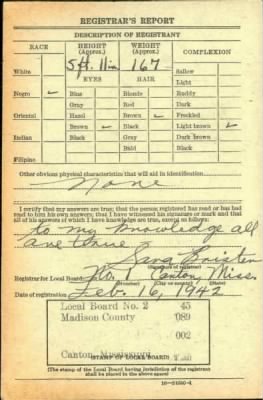 REGISTRAR'S REPORT
DESCRIPTION OF REGISTRANT
RACE HEIGHT (Approx.) WEIGHT (Approx.) COMPLEXION
White 5 ft. 11 in. 167 Sallow
EYES HAIR Light
Negro ✓ Blue Blonde Ruddy
Gray Red Dark
Oriental Hazel Brown ✓ Freckled
Brown ✓ Black Light brown ✓
Indian Black Gray Dark brown
Bald Black
Filipino
Other obvious physical characteristics that will aid in identification
None
I certify that my answers are true; that the person registered has read or has had
read to him his own answers; that I have witnessed his signature or mark and that all
of his answers of which I have knowledge are true, except as follows:
to my knowledge all
are true
(Signature of registrar)
Registrar for Local Board No. 1 Canton, Miss.
(Number) (City or county) (State)
Date of registration Feb. 16, 1942
Local Board No. 2 45
Madison County 089
002
Canton, Mississippi
(STAMP OF LOCAL BOARD)
(The stamp of the Local Board having jurisdiction of the registrant
shall be placed in the above space)